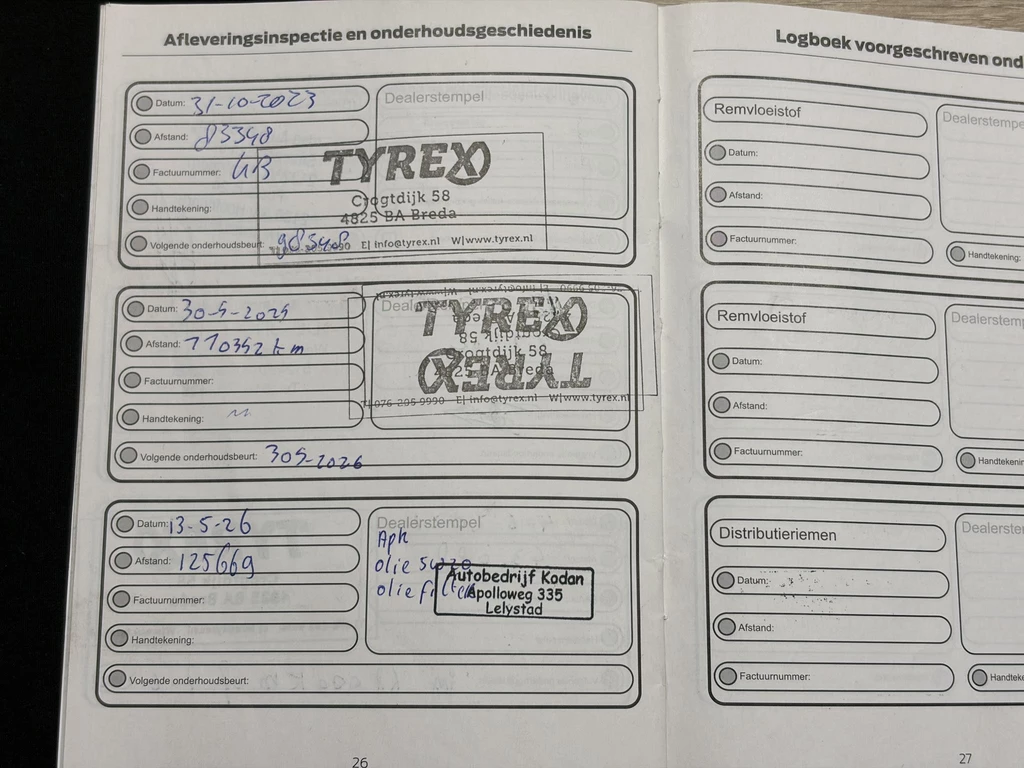 Afleveringsinspectie en onderhoudsgeschiedenis
Datum: 31-10-2023
Afstand: 83348
Factuurnummer:
Handtekening:
Volgende onderhoudsbeurt: 98548
Dealerstempel
TYREX
Crogtdijk 58
4825 BA Breda
E| info@tyrex.nl W|www.tyrex.nl
Datum: 30-5-2025
Afstand: 110392 km
Factuurnummer:
Handtekening:
Volgende onderhoudsbeurt: 305-2026
Dealerstempel
TYREX
Crogtdijk 58
4825 BA Breda
T| 076-205 9990 E| info@tyrex.nl W|www.tyrex.nl
TYREX
Datum: 13-5-26
Afstand: 125669
Factuurnummer:
Handtekening:
Volgende onderhoudsbeurt:
Dealerstempel
Apk
olie 5w30
olie filter
Autobedrijf Kodan
Apolloweg 335
Lelystad
26
Logboek voorgeschreven ond
Remvloeistof
Datum:
Afstand:
Factuurnummer:
Dealerstempe
Handtekening:
Remvloeistof
Datum:
Afstand:
Factuurnummer:
Dealerstem
Handtekenin
Distributieriemen
Datum:
Afstand:
Factuurnummer:
Dealerster
Handteke
27